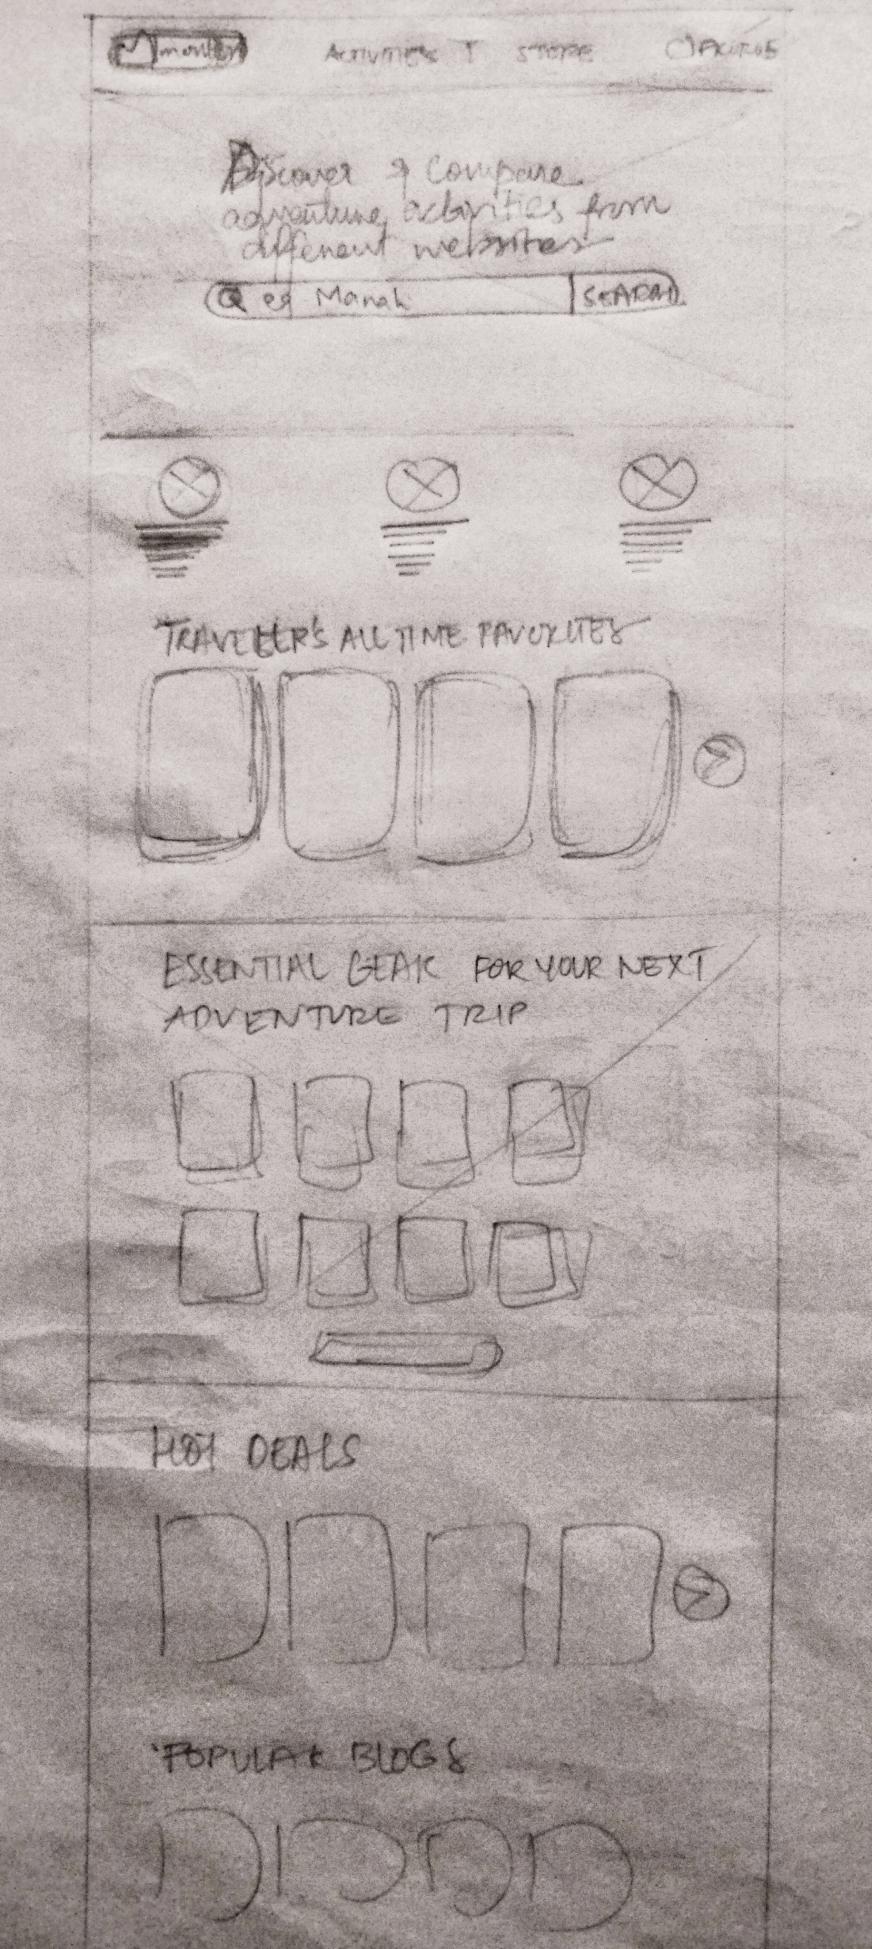 ACTIVITIES STORE
Discover & Compare
adventure activities from
different websites
eg Manali SEARCH
TRAVELLER'S ALL TIME FAVORITES
ESSENTIAL GEAR FOR YOUR NEXT
ADVENTURE TRIP
HOT DEALS
POPULAR BLOGS